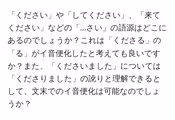 「ください」や「してください」、「来て
ください」などの「...さい」の語源はどこに
あるのでしょうか？これは「くださる」の
「る」がイ音便化したと考えても良いです
か？また、「くださいました」については
「くださりました」の訛りと理解できると
して、文末でのイ音便化は可能なのでしょ
うか？